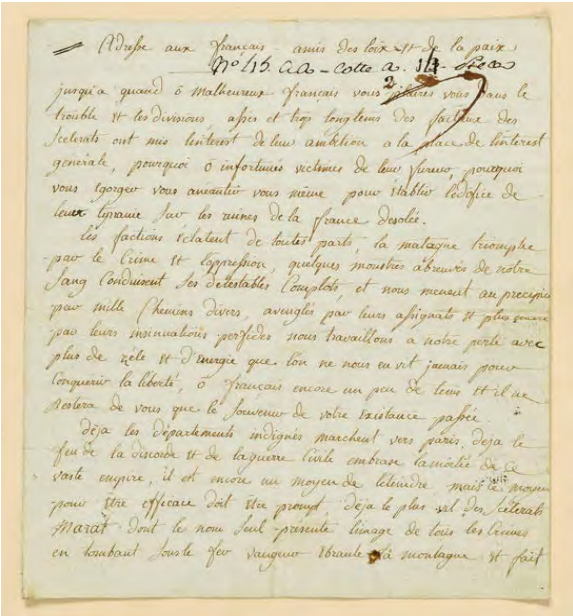 Adresse aux français amis des loix et de la paix
N° 45. aa - Cotte a. 1/4. Piece
2
jusqu'a quand ô malheureux français vous plairés vous dans le
trouble et les divisions, assés et trop longtems des factieux des
Scelerats ont mis linterest de leur ambition a la place de linterest
générale, pourquoi ô infortunés victimes de leur fureur, pourquoi
vous egorger vous anéantir vous même pour etablir lédifice de
leur tyranie sur les ruines de la france desolée.
Les factions éclatent de toutes parts, la montagne triomphe
par le Crime et l'oppression, quelques monstres abreuvés de notre
Sang Conduisent Ses détestables Complots, et nous menent au precipice
par mille Chemins divers, aveuglés par leurs assignats et plus encore
par leurs insinuations perfides nous travaillons a notre perte avec
plus de zele et d'energie que lon ne nous en vit jamais pour
Conquerir la liberté, ô français encore un peu de tems et il ne
restera de vous que le Souvenir de votre existance passée.
déja les départements indignés marchent vers paris, deja le
feu de la discorde et de la guerre Civile embrase la moitié de ce
vaste empire, il est encore un moyen de léteindre mais le moyen
pour être efficace doit être prompt. déja le plus vil des Scélerats
Marat dont le nom Seul présente limage de tous les Crimes
en tombant Sous le fer vangeur ebranle la montagne et fait